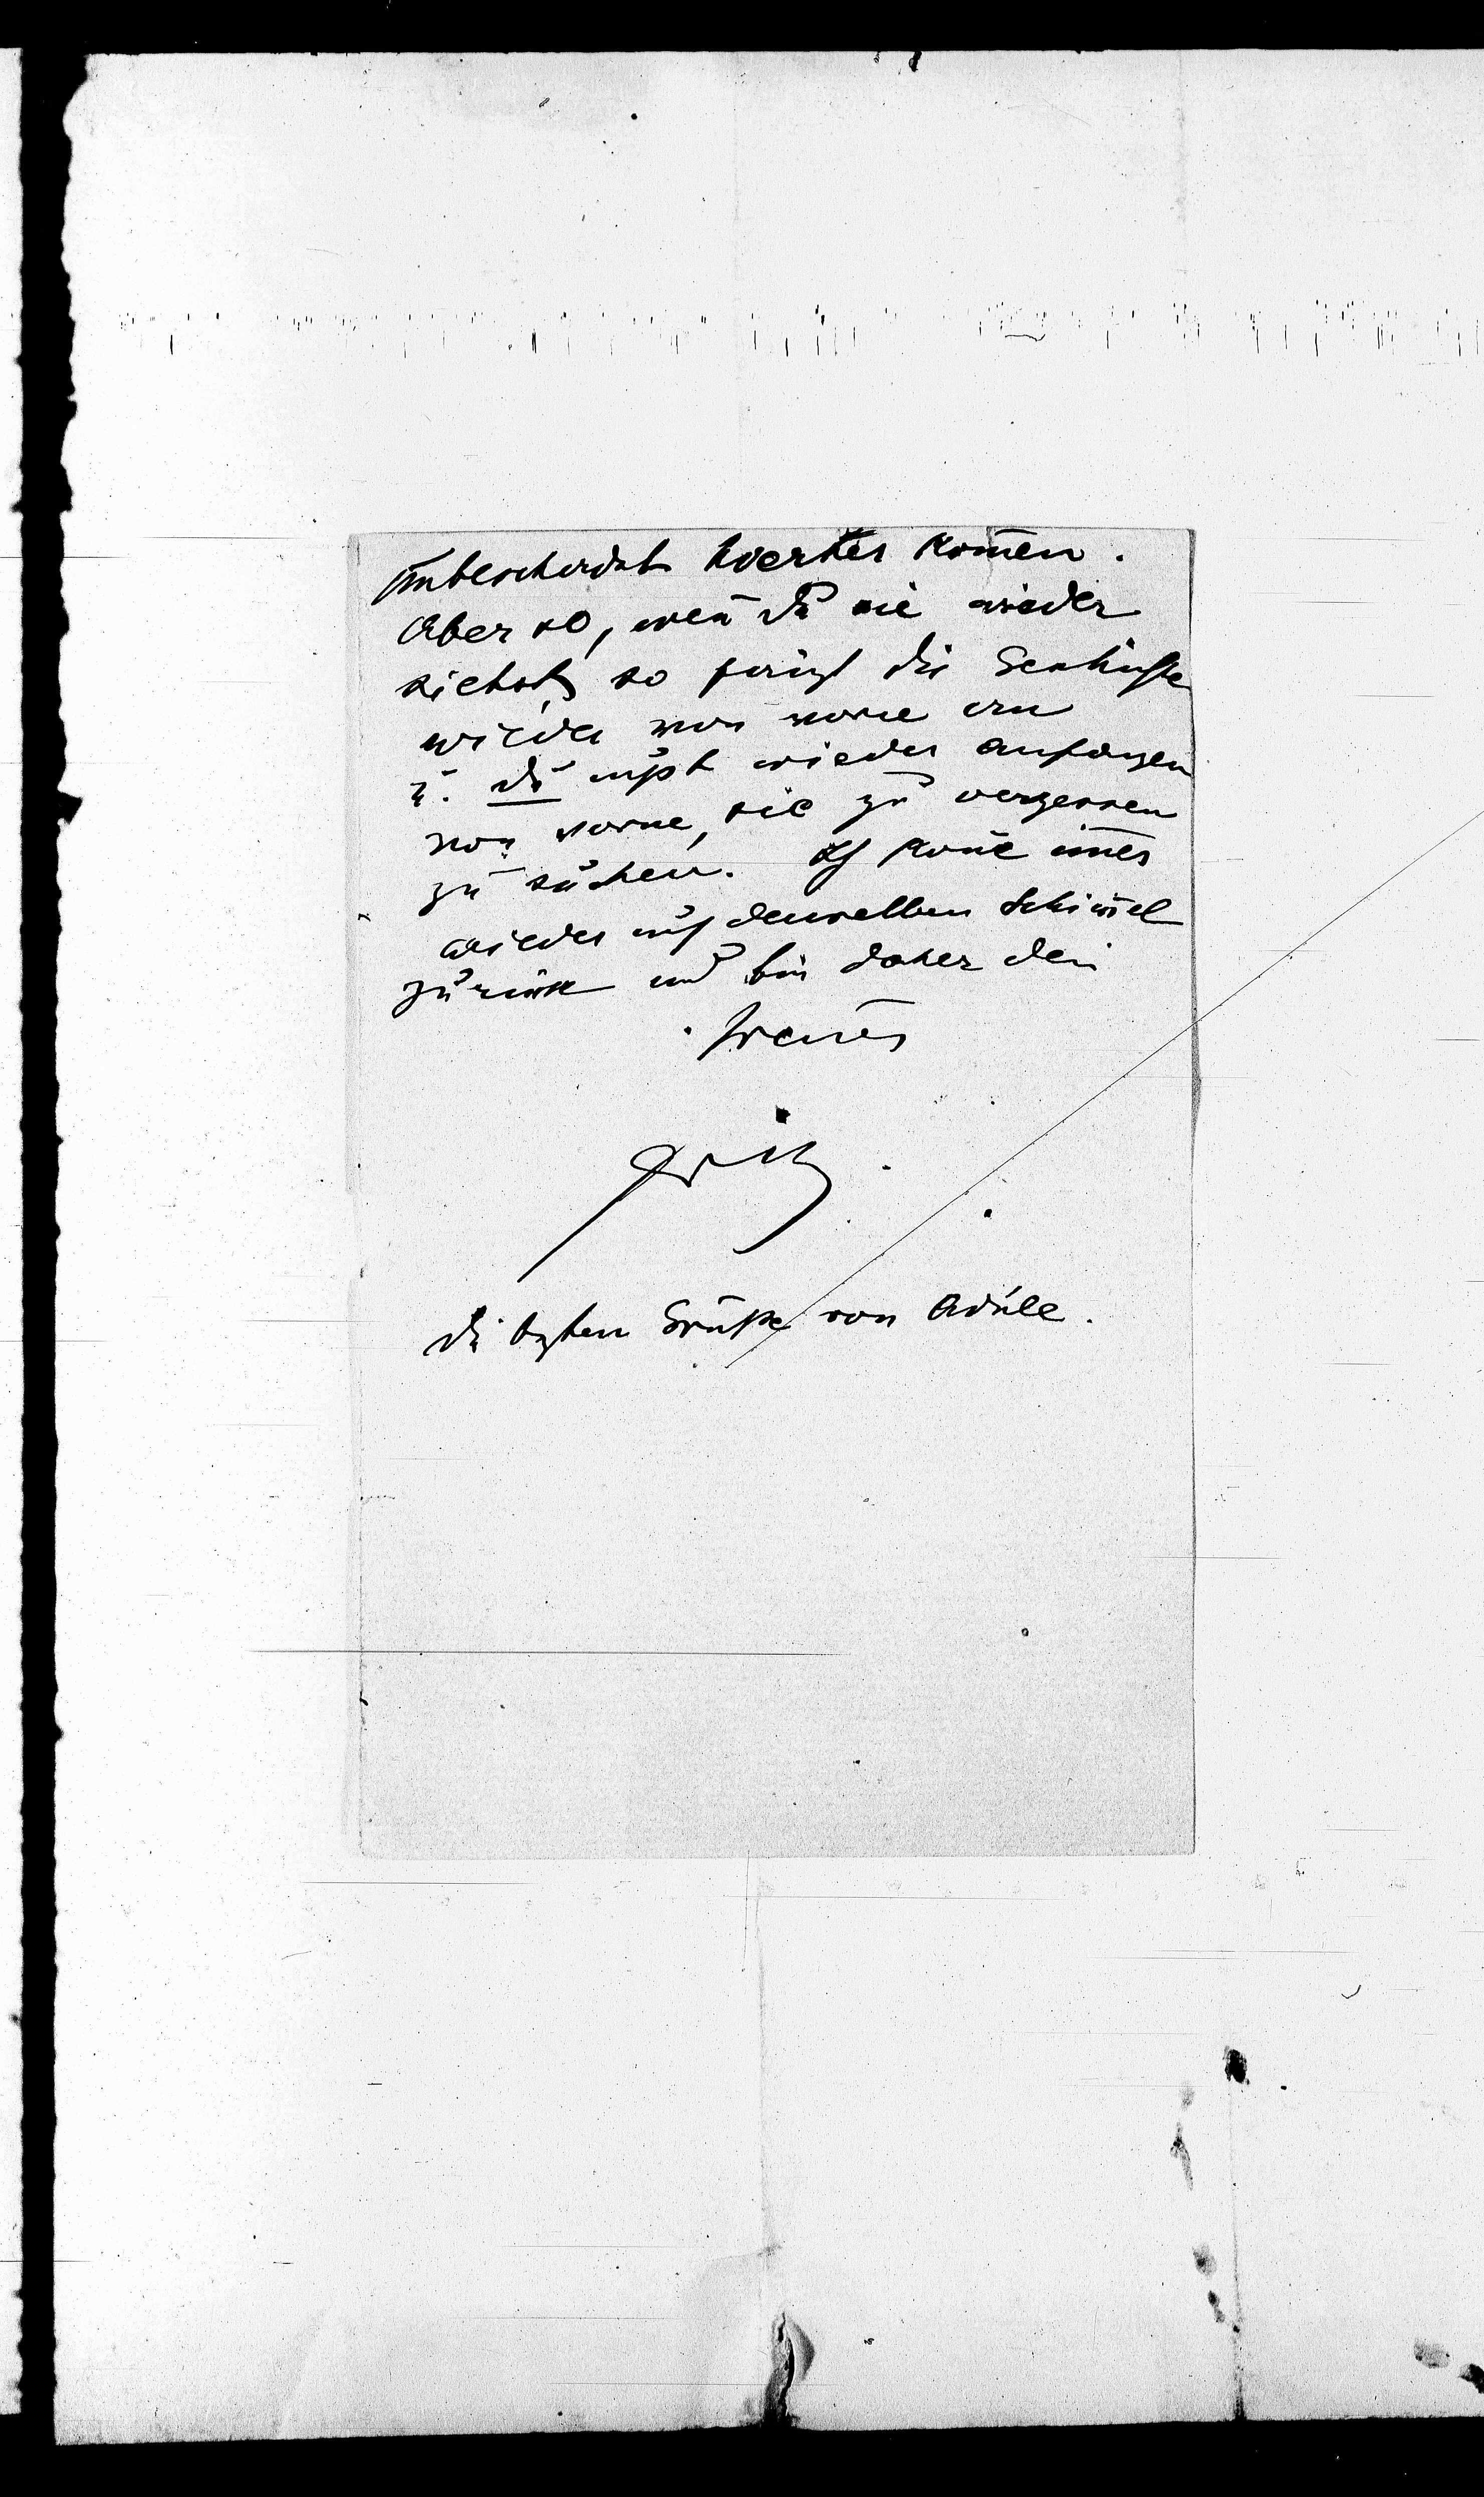 unbeschadet hierher kom̅en.
Aber so, wen̅ du sie wieder
siehst, so fängt die Geschichte
wieder von vorne an
u. du mußt wieder anfangen
von vorne, sie zu vergessen
zu suchen. Ich kom̅e im̅er
wieder auf denselben Schim̅el
zurück und bin daher dein
treuer
Fritz.
Die besten Grüße von Adele.